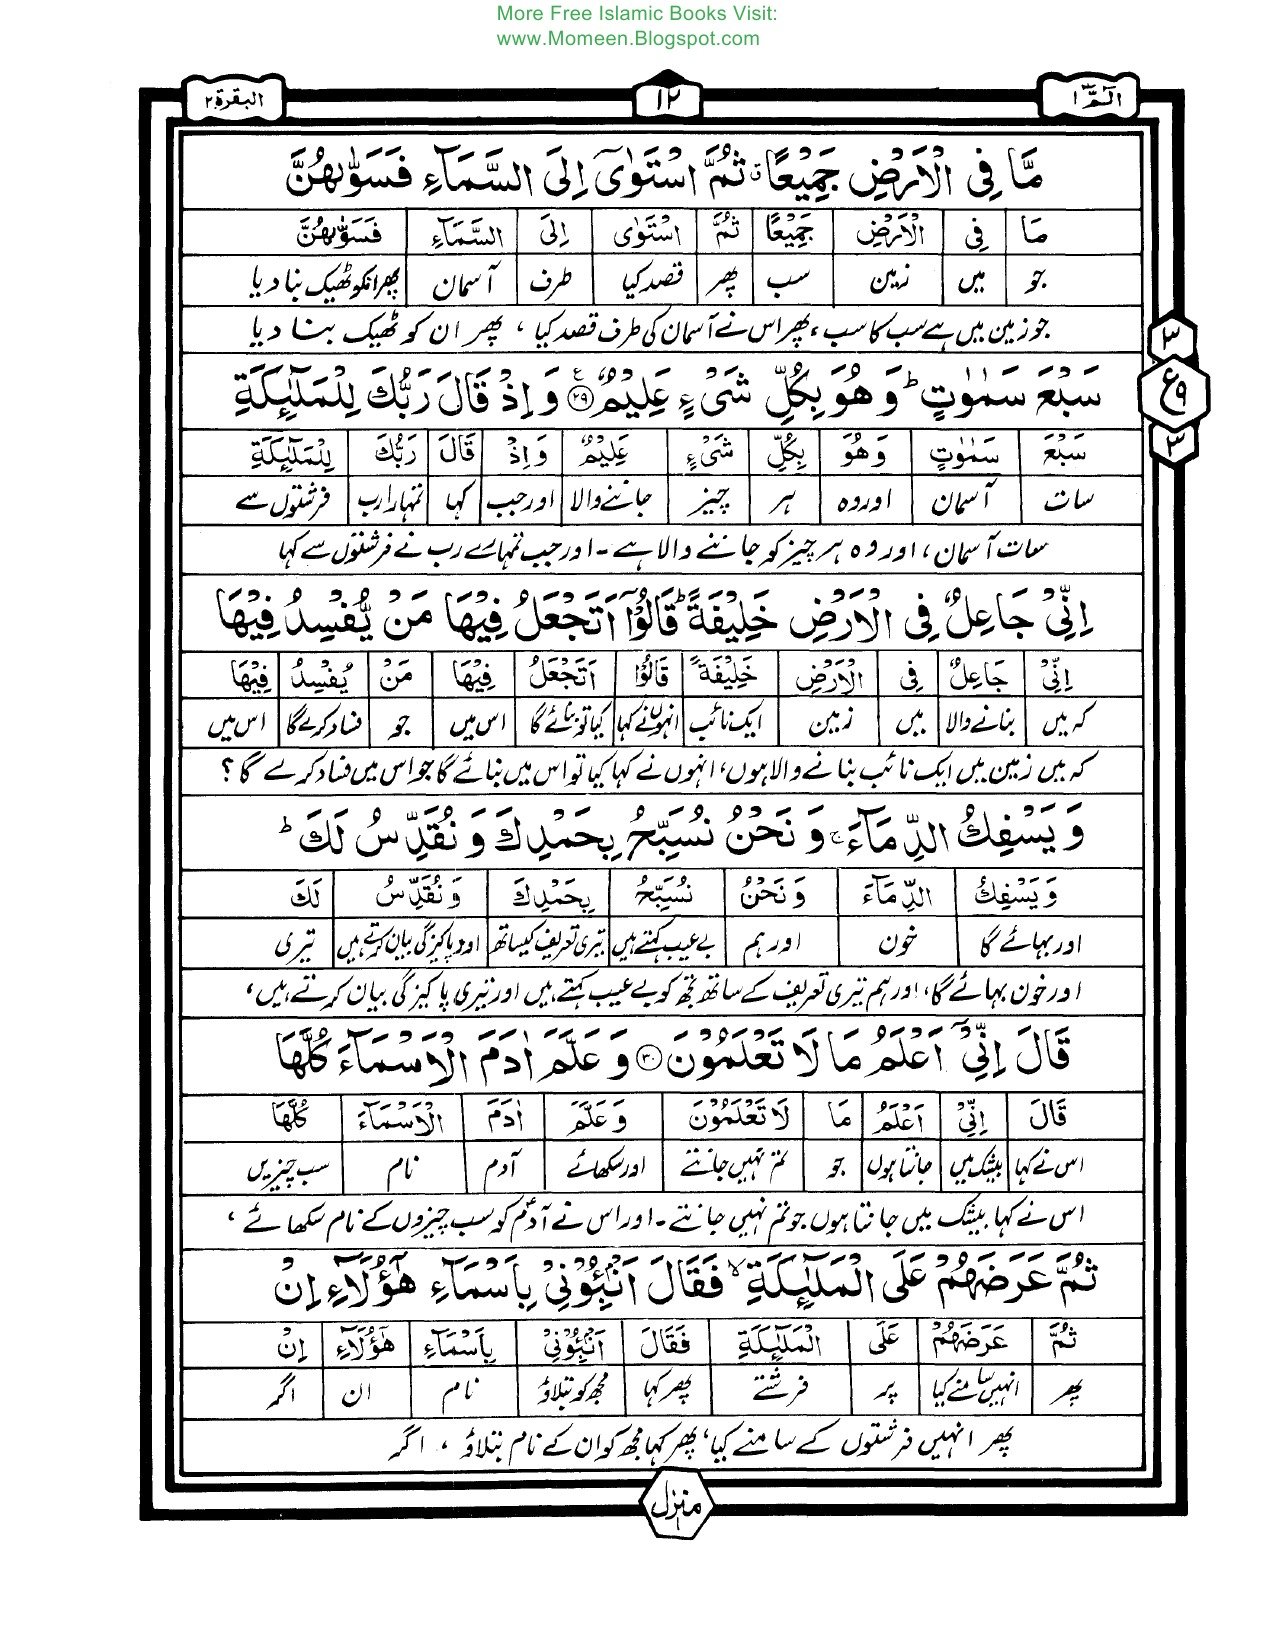 More Free Islamic Books Visit:
www.Momeen.Blogspot.com
الٓمّٓ ۱
۱۲
البقرة ۲
مَّا فِي الْاَرْضِ جَمِيْعًا ۗ ثُمَّ اسْتَوٰٓى اِلَى السَّمَآءِ فَسَوّٰىهُنَّ
مَا فِي الْاَرْضِ جَمِيْعًا ثُمَّ اسْتَوٰى اِلَى السَّمَآءِ فَسَوّٰىهُنَّ
جو میں زمین سب پھر قصد کیا طرف آسمان پھر انکو ٹھیک بنا دیا
جو زمین میں ہے سب کا سب، پھر اس نے آسمان کی طرف قصد کیا ، پھر ان کو ٹھیک بنا دیا
۳
ع ۹
۳
سَبْعَ سَمٰوٰتٍ ؕ وَ هُوَ بِكُلِّ شَيْءٍ عَلِيْمٌ ۲۹ ع وَ اِذْ قَالَ رَبُّكَ لِلْمَلٰٓئِكَةِ
سَبْعَ سَمٰوٰتٍ وَ هُوَ بِكُلِّ شَيْءٍ عَلِيْمٌ وَ اِذْ قَالَ رَبُّكَ لِلْمَلٰٓئِكَةِ
سات آسمان اور وہ ہر چیز جاننے والا اور جب کہا تمہارا رب فرشتوں سے
سات آسمان، اور وہ ہر چیز کو جاننے والا ہے ۔ اور جب تمہارے رب نے فرشتوں سے کہا
اِنِّيْ جَاعِلٌ فِي الْاَرْضِ خَلِيْفَةً ؕ قَالُوْٓا اَتَجْعَلُ فِيْهَا مَنْ يُّفْسِدُ فِيْهَا
اِنِّيْ جَاعِلٌ فِي الْاَرْضِ خَلِيْفَةً قَالُوْا اَتَجْعَلُ فِيْهَا مَنْ يُفْسِدُ فِيْهَا
کہ میں بنانے والا میں زمین ایک نائب انہوں نے کہا کیا تو بنائے گا اس میں جو فساد کرے گا اس میں
کہ میں زمین میں ایک نائب بنانے والا ہوں، انہوں نے کہا کیا تو اس میں بنائے گا جو اس میں فساد کرے گا ؟
وَ يَسْفِكُ الدِّمَآءَ ۚ وَ نَحْنُ نُسَبِّحُ بِحَمْدِكَ وَ نُقَدِّسُ لَكَ ؕ
وَ يَسْفِكُ الدِّمَآءَ وَ نَحْنُ نُسَبِّحُ بِحَمْدِكَ وَ نُقَدِّسُ لَكَ
اور بہائے گا خون اور ہم بے عیب کہتے ہیں تیری تعریف کیساتھ اور پاکیزگی بیان کرتے ہیں تیری
اور خون بہائے گا، اور ہم تیری تعریف کے ساتھ تجھ کو بے عیب کہتے ہیں اور تیری پاکیزگی بیان کرتے ہیں،
قَالَ اِنِّيْٓ اَعْلَمُ مَا لَا تَعْلَمُوْنَ ۳۰ وَ عَلَّمَ اٰدَمَ الْاَسْمَآءَ كُلَّهَا
قَالَ اِنِّيْ اَعْلَمُ مَا لَا تَعْلَمُوْنَ وَ عَلَّمَ اٰدَمَ الْاَسْمَآءَ كُلَّهَا
اس نے کہا بیشک میں جانتا ہوں جو تم نہیں جانتے اور سکھائے آدم نام سب چیزیں
اس نے کہا بیشک میں جانتا ہوں جو تم نہیں جانتے ۔ اور اس نے آدمؑ کو سب چیزوں کے نام سکھائے ،
ثُمَّ عَرَضَهُمْ عَلَى الْمَلٰٓئِكَةِ ۙ فَقَالَ اَنْۢبِـُٔوْنِيْ بِاَسْمَآءِ هٰٓؤُلَآءِ اِنْ
ثُمَّ عَرَضَهُمْ عَلَى الْمَلٰٓئِكَةِ فَقَالَ اَنْۢبِـُٔوْنِيْ بِاَسْمَآءِ هٰٓؤُلَآءِ اِنْ
پھر انہیں سامنے کیا پر فرشتے پھر کہا مجھ کو بتلاؤ نام ان اگر
پھر انہیں فرشتوں کے سامنے کیا، پھر کہا مجھ کو ان کے نام بتلاؤ ، اگر
منزل ۱